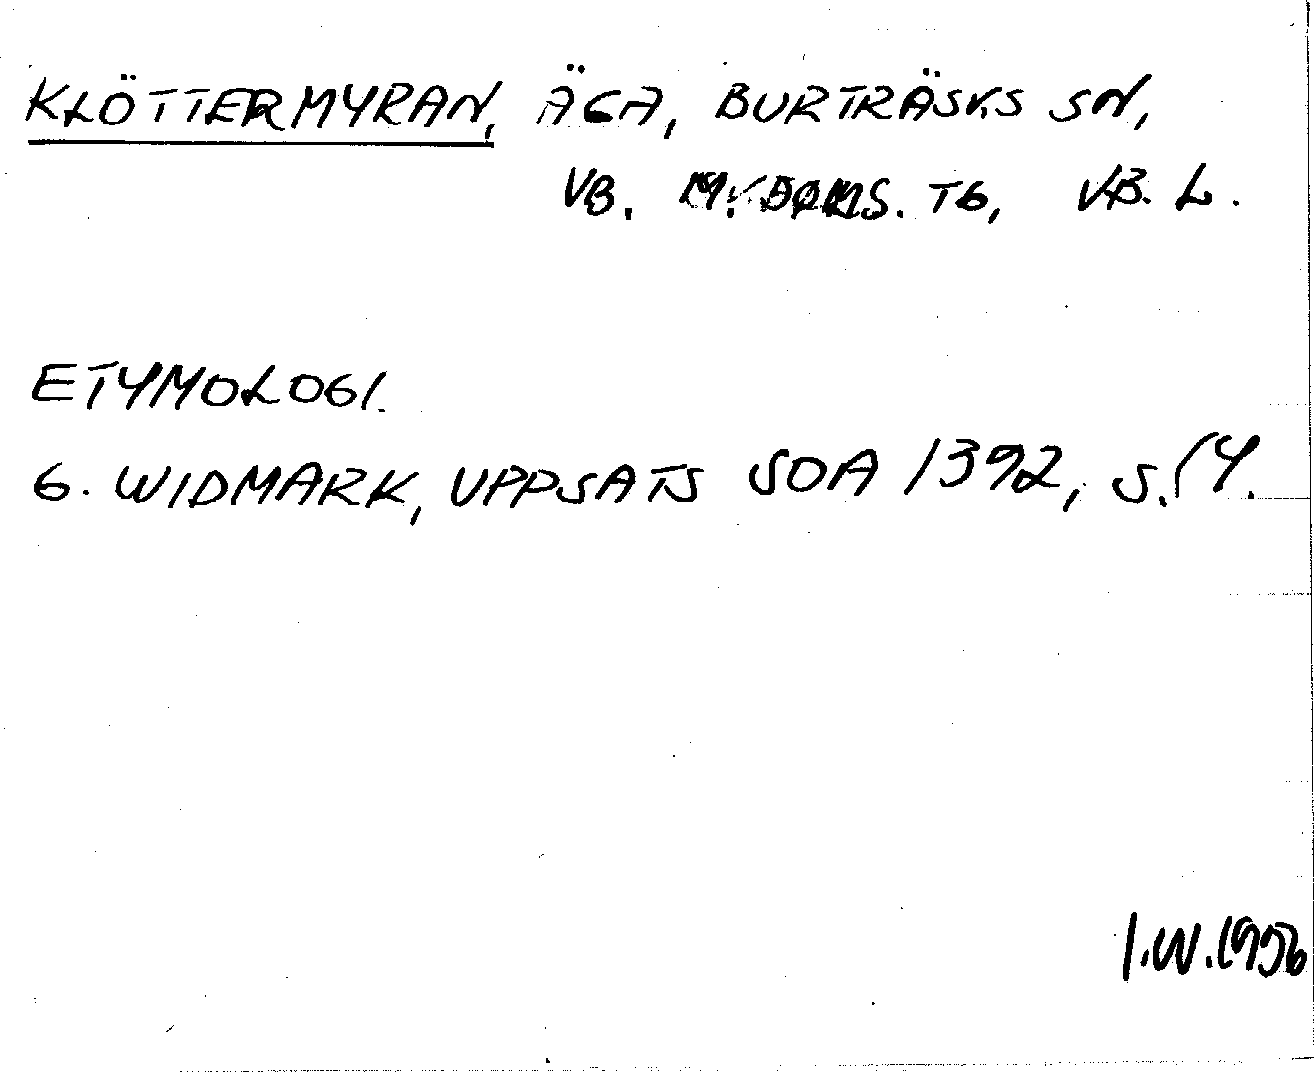 KLÖTTERMYRAN, ÄGA, BURTRÄSKS SN,
VB. TG, VB. L.
ETYMOLOGI.
G. WIDMARK, UPPSATS SOA 1392, S. 14.
I.W. 1956